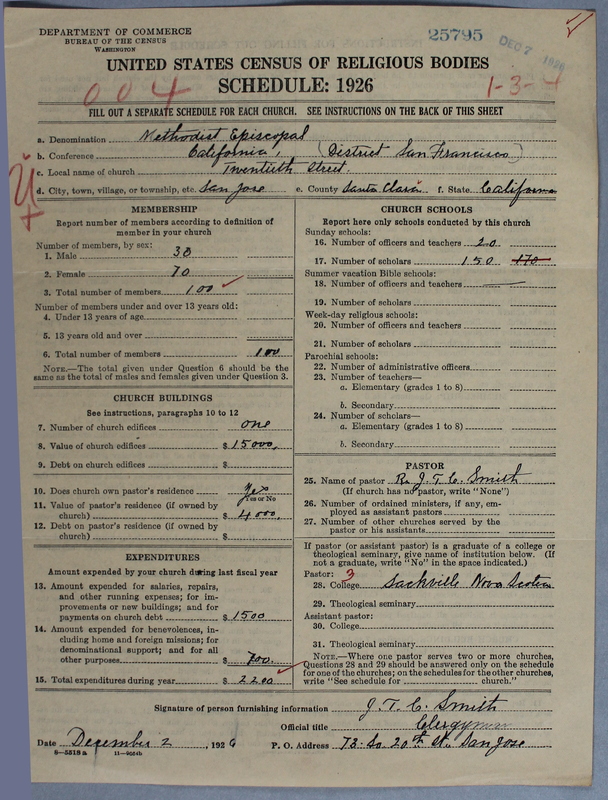 DEPARTMENT OF COMMERCE
BUREAU OF THE CENSUS
WASHINGTON
25795
DEC 7 1926
UNITED STATES CENSUS OF RELIGIOUS BODIES
SCHEDULE: 1926
004
1-3-4
FILL OUT A SEPARATE SCHEDULE FOR EACH CHURCH. SEE INSTRUCTIONS ON THE BACK OF THIS SHEET
a. Denomination Methodist Episcopal
b. Conference California (District San Francisco)
c. Local name of church Twentieth Street
d. City, town, village, or township, etc. San Jose e. County Santa Clara f. State California
MEMBERSHIP
Report number of members according to definition of
member in your church
Number of members, by sex:
1. Male 30
2. Female 70
3. Total number of members 100
Number of members under and over 13 years old:
4. Under 13 years of age
5. 13 years old and over
6. Total number of members 100
NOTE.—The total given under Question 6 should be the
same as the total of males and females given under Question 3.
CHURCH BUILDINGS
See instructions, paragraphs 10 to 12
7. Number of church edifices one
8. Value of church edifices $ 15000,
9. Debt on church edifices $
10. Does church own pastor's residence Yes
Yes or No
11. Value of pastor's residence (if owned by
church) $ 4000,
12. Debt on pastor's residence (if owned by
church) $
EXPENDITURES
Amount expended by your church during last fiscal year
13. Amount expended for salaries, repairs,
and other running expenses; for im-
provements or new buildings; and for
payments on church debt $ 1500
14. Amount expended for benevolences, in-
cluding home and foreign missions; for
denominational support; and for all
other purposes $ 700.
15. Total expenditures during year $ 2200
CHURCH SCHOOLS
Report here only schools conducted by this church
Sunday schools:
16. Number of officers and teachers 20
17. Number of scholars 150 170
Summer vacation Bible schools:
18. Number of officers and teachers
19. Number of scholars
Week-day religious schools:
20. Number of officers and teachers
21. Number of scholars
Parochial schools:
22. Number of administrative officers
23. Number of teachers—
a. Elementary (grades 1 to 8)
b. Secondary
24. Number of scholars—
a. Elementary (grades 1 to 8)
b. Secondary
PASTOR
25. Name of pastor Rev J. T. C. Smith
(If church has no pastor, write "None")
26. Number of ordained ministers, if any, em-
ployed as assistant pastors
27. Number of other churches served by the
pastor or his assistants
If pastor (or assistant pastor) is a graduate of a college or
theological seminary, give name of institution below. (If
not a graduate, write "No" in the space indicated.)
Pastor: 3
28. College Sackville Nova Scotia
29. Theological seminary
Assistant pastor:
30. College
31. Theological seminary
NOTE.—Where one pastor serves two or more churches,
Questions 28 and 29 should be answered only on the schedule
for one of the churches; on the schedules for the other churches,
write "See schedule for church."
Signature of person furnishing information J. T. C. Smith
Official title Clergyman
Date December 2, 1926 P. O. Address 73 So. 20th St. San Jose
8-5518 a 11-9064b